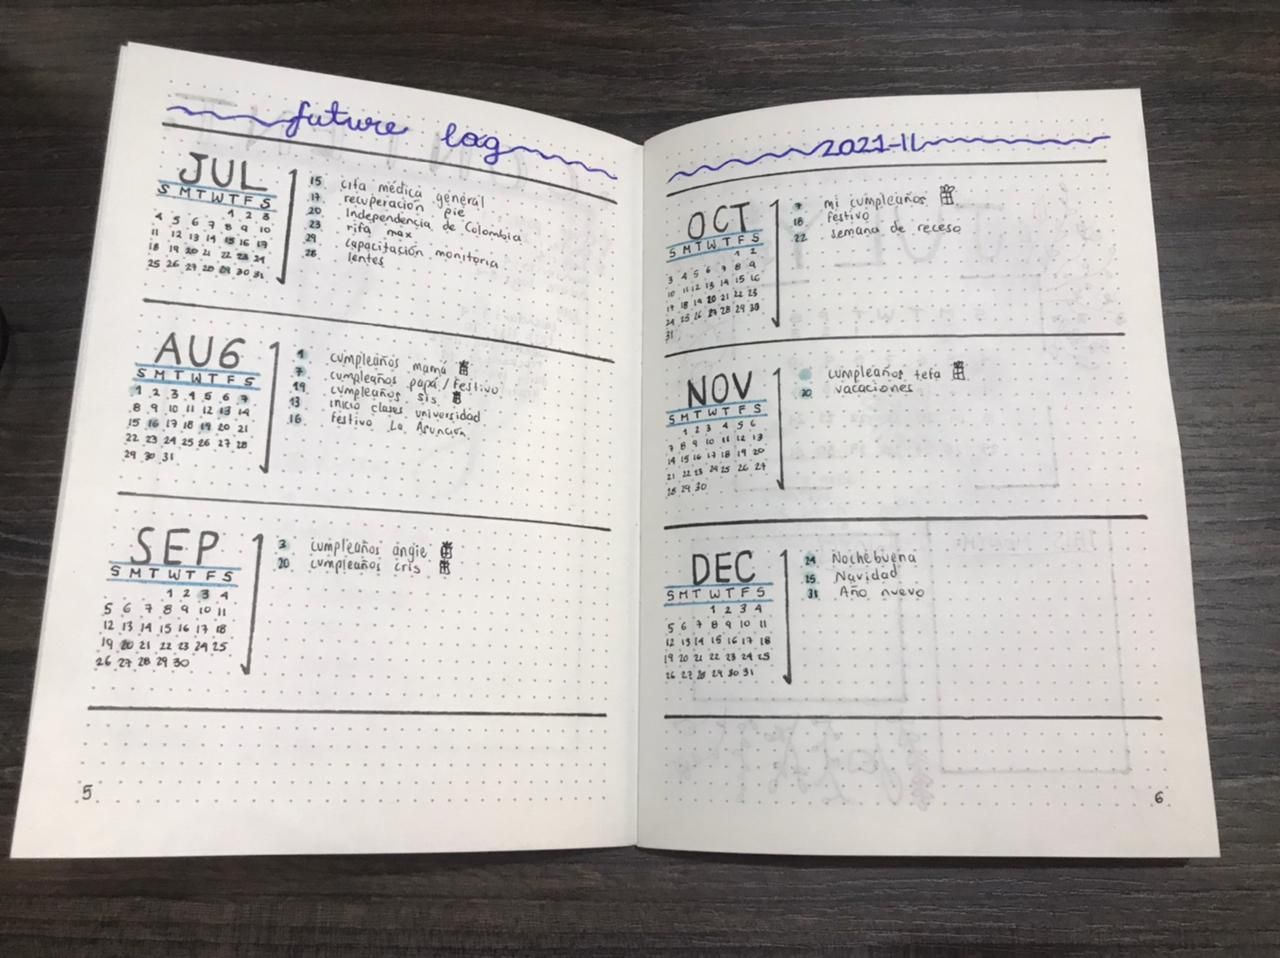 future log
JUL
S M T W T F S
1 2 3
4 5 6 7 8 9 10
11 12 13 14 15 16 17
18 19 20 21 22 23 24
25 26 27 28 29 30 31
15 cita médica general
17 recuperación pie
20 Independencia de Colombia
23 rifa max
29 capacitación monitoria
28 lentes
AUG
S M T W T F S
1 2 3 4 5 6 7
8 9 10 11 12 13 14
15 16 17 18 19 20 21
22 23 24 25 26 27 28
29 30 31
1 cumpleaños mamá
7 cumpleaños papá/festivo
19 cumpleaños sis
13 inicio clases universidad
16 festivo La Asunción
SEP
S M T W T F S
1 2 3 4
5 6 7 8 9 10 11
12 13 14 15 16 17 18
19 20 21 22 23 24 25
26 27 28 29 30
3 cumpleaños angie
20 cumpleaños cris
5
2021-II
OCT
S M T W T F S
1 2
3 4 5 6 7 8 9
10 11 12 13 14 15 16
17 18 19 20 21 22 23
24 25 26 27 28 29 30
31
mi cumpleaños
18 festivo
22 semana de receso
NOV
S M T W T F S
1 2 3 4 5 6
7 8 9 10 11 12 13
14 15 16 17 18 19 20
21 22 23 24 25 26 27
28 29 30
cumpleaños tefa
20 vacaciones
DEC
S M T W T F S
1 2 3 4
5 6 7 8 9 10 11
12 13 14 15 16 17 18
19 20 21 22 23 24 25
26 27 28 29 30 31
24 Nochebuena
25 Navidad
31 Año nuevo
6